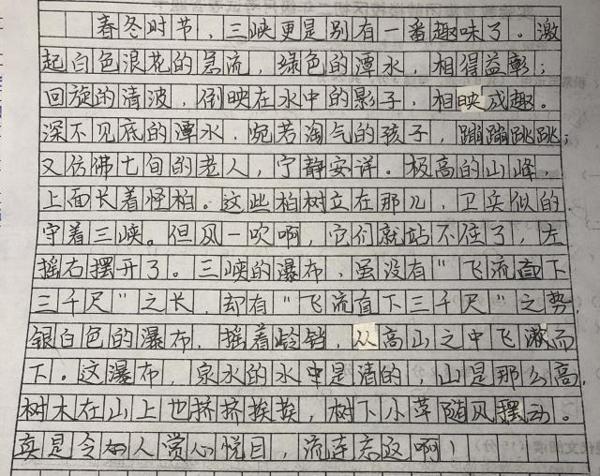 春冬时节，三峡更是别有一番趣味了。激
起白色浪花的急流，绿色的潭水，相得益彰；
回旋的清波，倒映在水中的影子，相映成趣。
深不见底的潭水，宛若淘气的孩子，蹦蹦跳跳；
又仿佛七旬的老人，宁静安详。极高的山峰，
上面长着怪柏。这些柏树立在那儿，卫兵似的
守着三峡。但风一吹啊，它们就站不住了，左
摇右摆开了。三峡的瀑布，虽没有“飞流直下
三千尺”之长，却有“飞流直下三千尺”之势，
银白色的瀑布，摇着铃铛，从高山之中飞漱而
下。这瀑布，泉水的水中是清的，山是那么高，
树木在山上也挤挤挨挨，树下小草随风摆动。
真是令人赏心悦目，流连忘返啊！